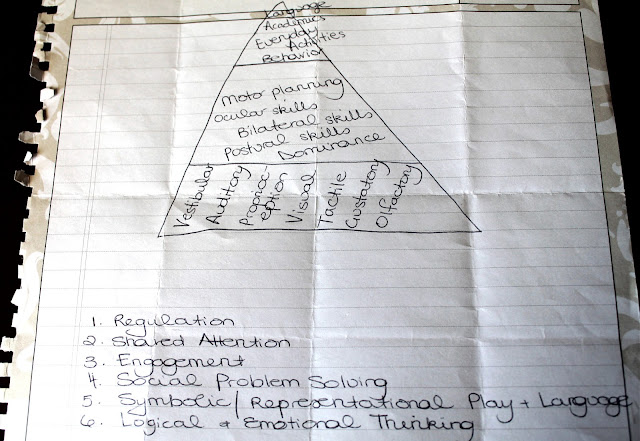 Language
Academics
Everyday
Activities
Behavior
Motor planning
Ocular skills
Bilateral skills
Postural skills
Dominance
Vestibular
Auditory
Proprioc-
eption
Visual
Tactile
Gustatory
Olfactory
1. Regulation
2. Shared Attention
3. Engagement
4. Social Problem Solving
5. Symbolic/Representational Play + Language
6. Logical + Emotional Thinking